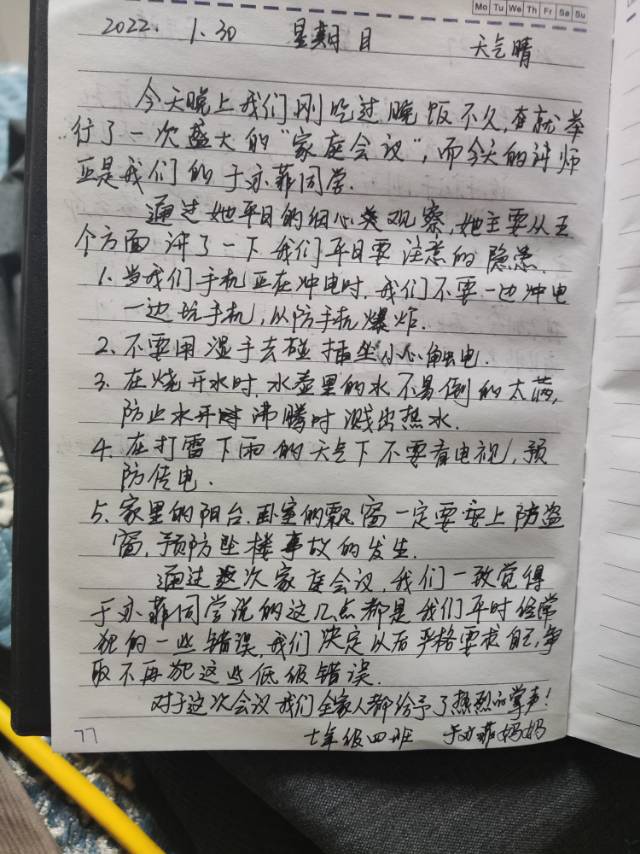 Mo Tu We Th Fr Sa Su
2022. 1.30 星期日 天气晴
今天晚上我们刚吃过晚饭不久,就举
行了一次盛大的"家庭会议",而今天的讲师
正是我们的于亦菲同学.
通过她平日的细心类观察,她主要从五
个方面讲了一下我们平日要注意的隐患.
1.当我们手机正在冲电时,我们不要一边冲电
一边玩手机,以防手机爆炸.
2.不要用湿手去碰插坐小心触电.
3.在烧开水时,水壶里的水不易倒的太满,
防止水开时沸腾时溅出热水.
4.在打雷下雨的天气下不要看电视,预
防传电.
5.家里的阳台.卧室的飘窗一定要安上防盗
窗,预防坠楼事故的发生.
通过这次家庭会议,我们一致觉得
于亦菲同学说的这几点都是我们平时经常
犯的一些错误,我们决定以后严格要求自己,争
取不再犯这些低级错误.
对于这次会议我们全家人都给予了热烈的掌声!
77 七年级四班 于亦菲妈妈